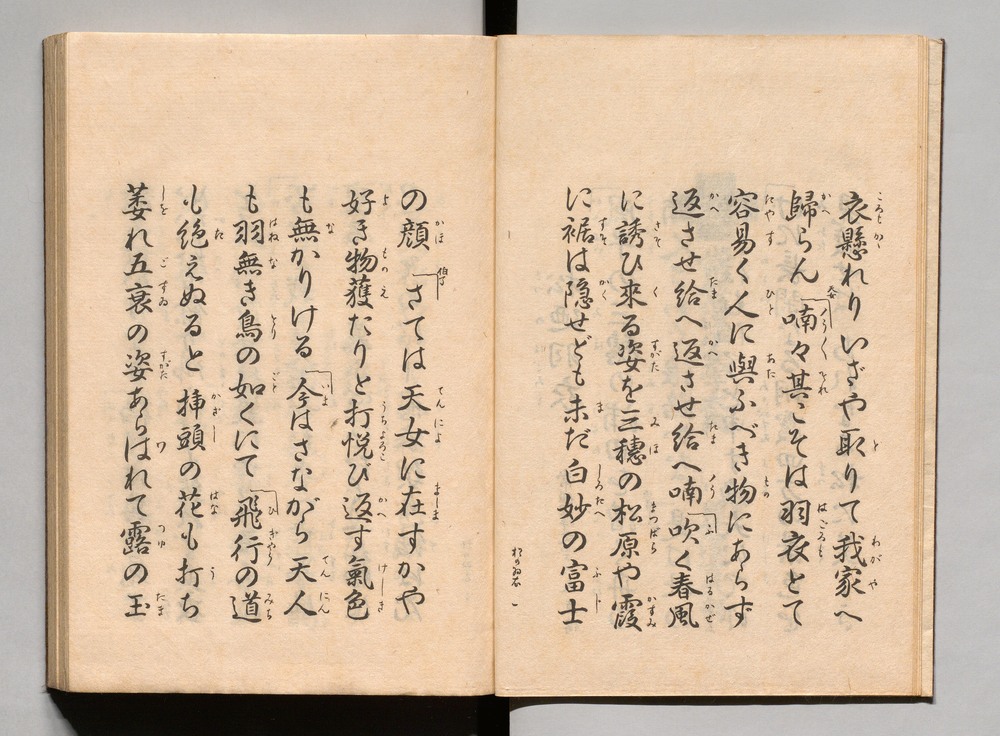 衣懸れりいざや取りて我家へ
歸らん喃々其こそは羽衣とて
容易く人に與ふべき物にあらず
返させ給へ返させ給へ喃吹く春風
に誘ひ來る姿を三穗の松原や霞
に裾は隠せども未だ白妙の富士
の顔さては天女に在すかや
好き物獲たりと打悦び返す氣色
も無かりける今はさながら天人
も羽無き鳥の如くにて飛行の道
も絶えぬると挿頭の花も打ち
萎れ五衰の姿あらはれて露の玉